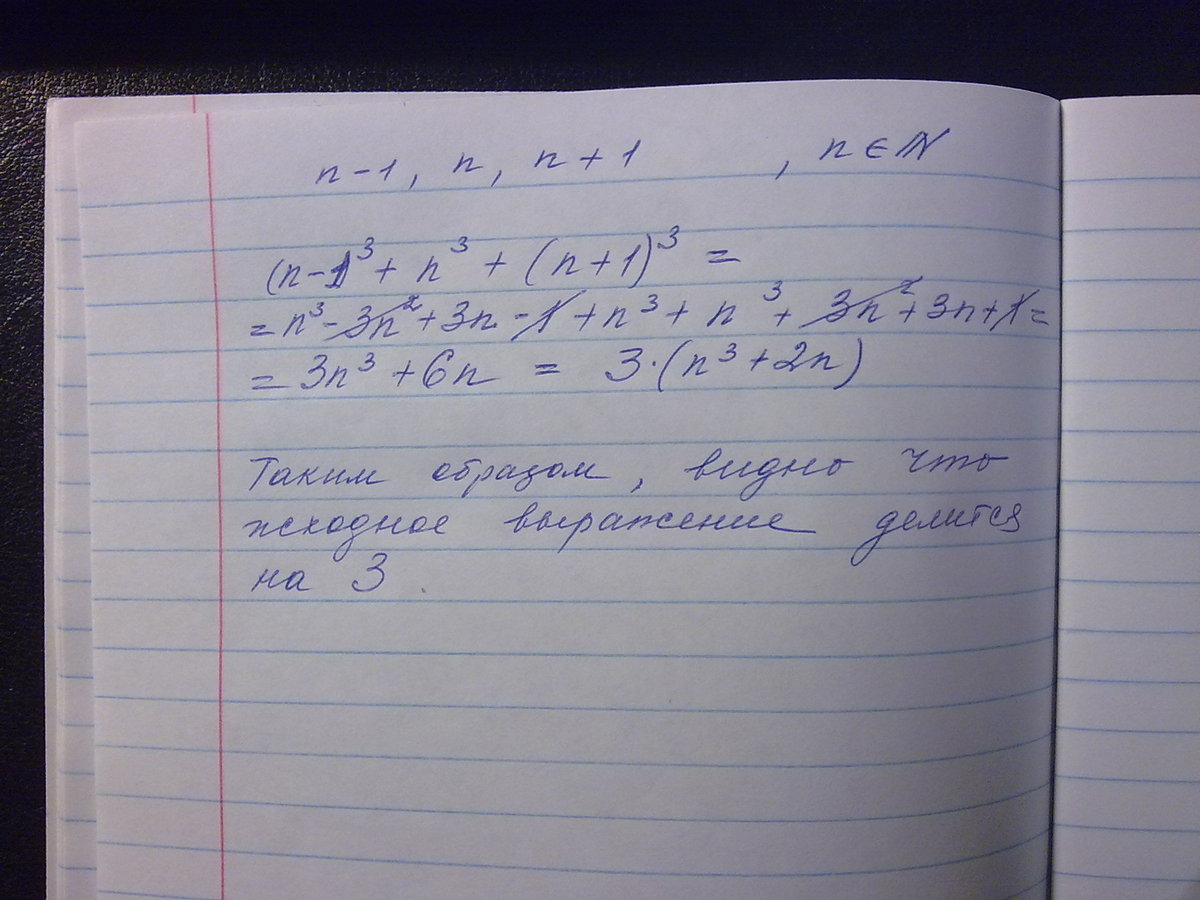 n-1, n, n+1 , n∈ℕ
(n-1)³ + n³ + (n+1)³ =
= n³ - 3n² + 3n - 1 + n³ + n³ + 3n² + 3n + 1 =
= 3n³ + 6n = 3·(n³ + 2n)
Таким образом, видно что
исходное выражение делится
на 3.